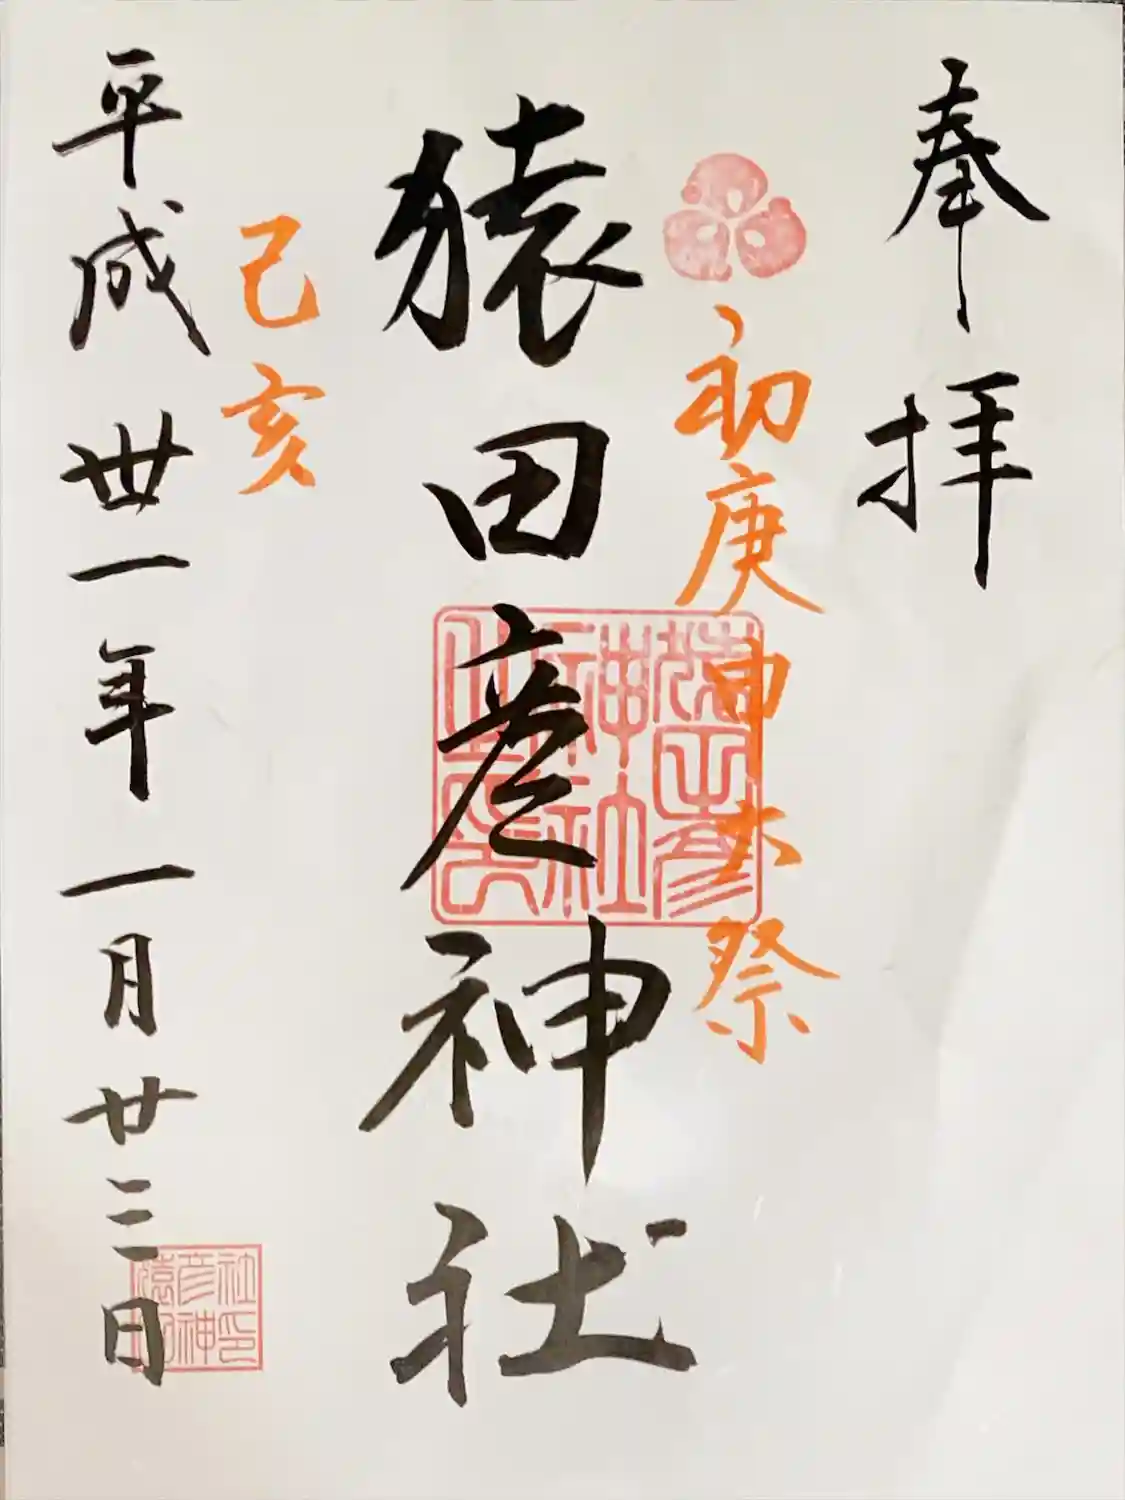 奉拝
初庚申大祭
猿田彦神社
己亥
平成卅一年一月廿三日